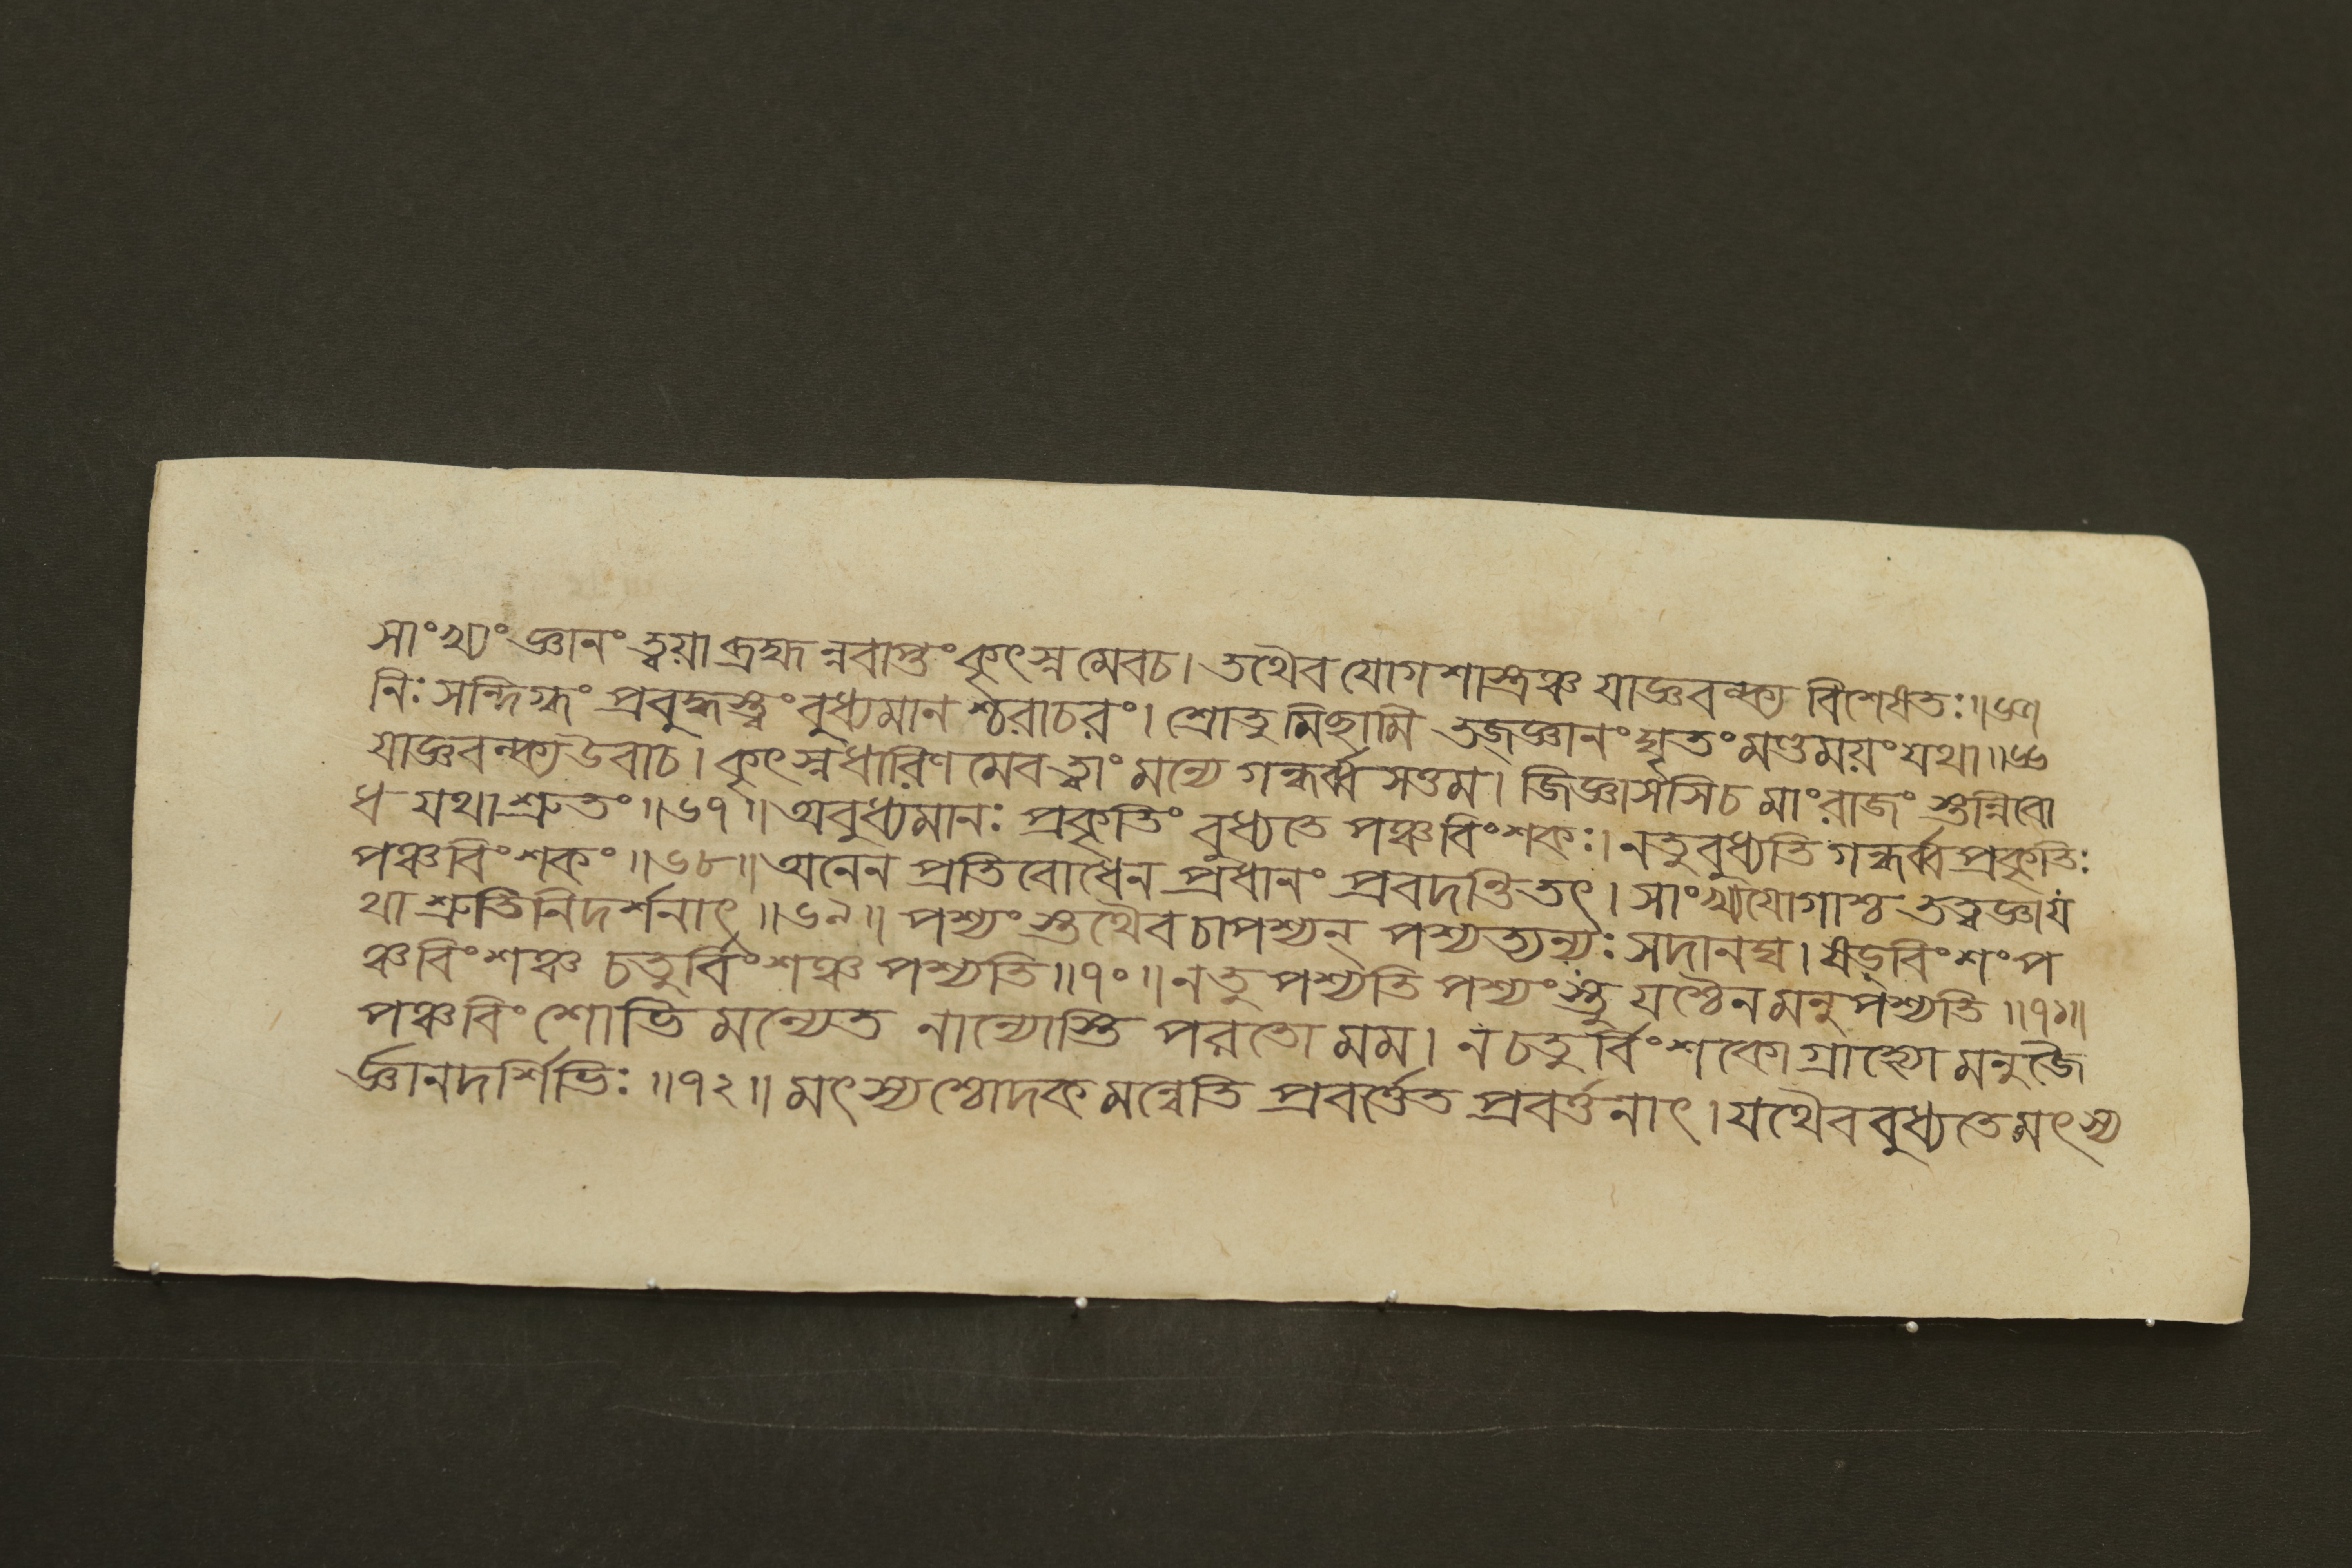 সাংখ্যং জ্ঞানং ত্বয়া ব্রহ্মন্নবাপ্তং কৃৎস্নমেবচ। তথৈব যোগশাস্ত্রঞ্চ যাজ্ঞবল্ক্য বিশেষতঃ॥৬৫॥
নিঃসন্দিগ্ধং প্রবুদ্ধস্ত্বং বুধ্যমানশ্চরাচরং। শ্রোতুমিছামি তজ্জ্ঞানং ঘৃতং মণ্ডময়ং যথা॥৬৬
যাজ্ঞবল্ক্য উবাচ। কৃৎস্নধারিণমেব ত্বাং মন্যে গন্ধর্ব্ব সত্তম। জিজ্ঞাসসিচ মাং রাজং স্তন্নিবো
ধ যথাশ্রুতং॥৬৭॥ অবুধ্যমানঃ প্রকৃতিং বুধ্যতে পঞ্চবিংশকঃ। নতু বুধ্যতি গন্ধর্ব্ব প্রকৃতিঃ
পঞ্চবিংশকং॥৬৮॥ অনেন প্রতিবোধেন প্রধানং প্রবদন্তিতৎ। সাংখ্যযোগাশ্চ তত্ত্বজ্ঞা য
থা শ্রুতিনিদর্শনাৎ॥৬৯॥ পশ্যং স্তথৈব চাপশ্যন্ পশ্যত্যন্যঃ সদানঘ। ষড়্‌বিংশং প
ঞ্চবিংশঞ্চ চতুর্বিংশঞ্চ পশ্যতি॥৭০॥ নতু পশ্যতি পশ্যংস্তু যশ্চৈনমনুপশ্যতি॥৭১॥
পঞ্চবিংশোভিমন্যেত নান্যোস্তি পরতো মম। ন চতুর্বিংশকো গ্রাহ্যো মনুজৈ
র্জ্ঞানদর্শিভিঃ॥৭২॥ মৎস্যশ্চোদকমন্বেতি প্রবর্ত্তেত প্রবর্ত্তনাৎ। যথৈব বুধ্যতে মৎস্য